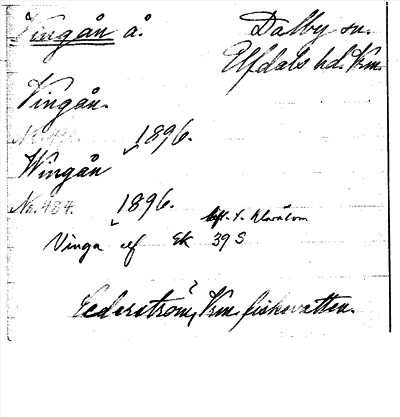 Vingån å. Dalby sn.
Elfdals hd. Vrm.
Vingån.
1896.
Wingån
No. 484. 1896.
Vinga elf Ek 39 S
bifl. t. Klarälven
Cederström, Vrm. fiskevatten.